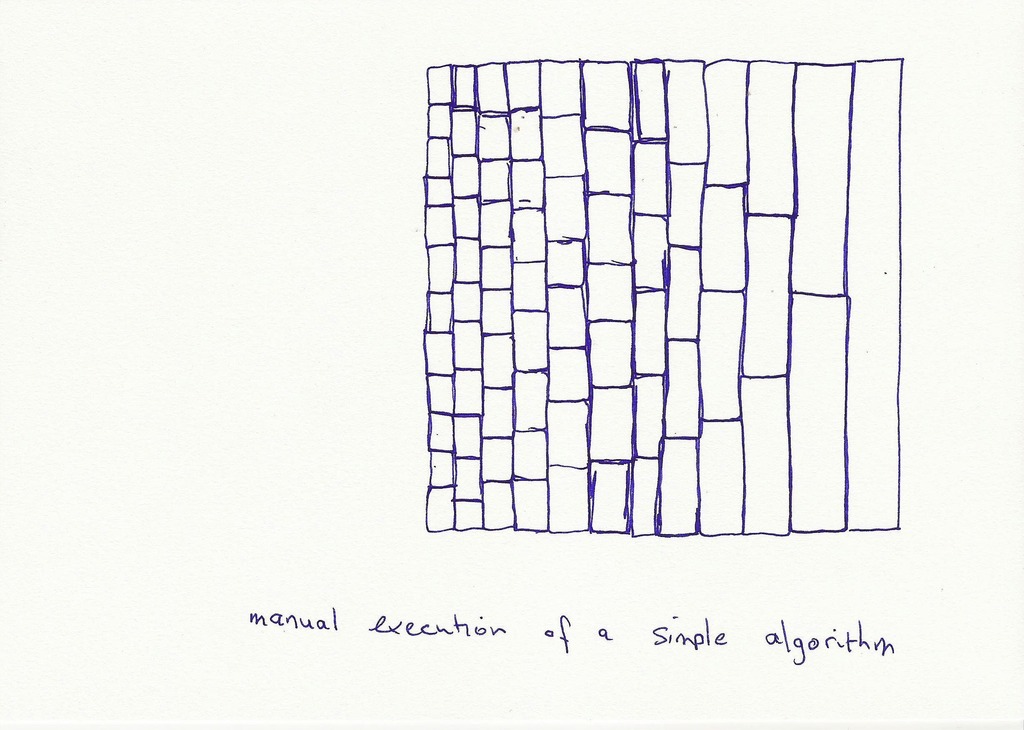 manual execution of a simple algorithm